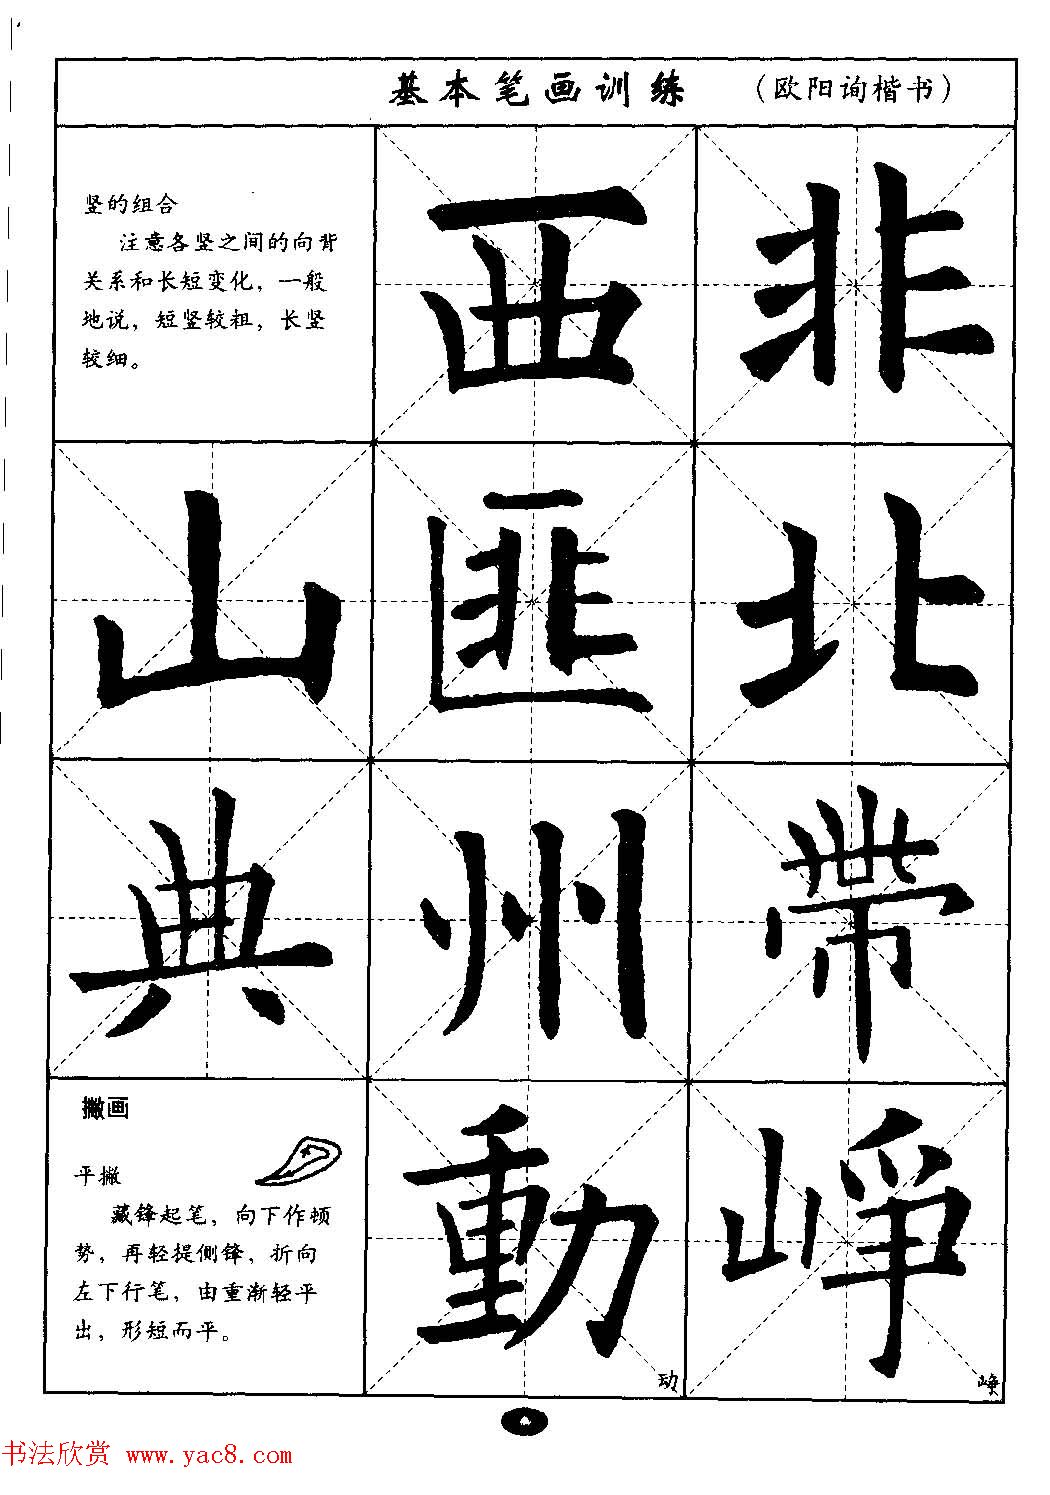 基本笔画训练 （欧阳询楷书）
竖的组合
注意各竖之间的向背
关系和长短变化，一般
地说，短竖较粗，长竖
较细。
西 非
山 匪 北
典 州 带
撇画
平撇
藏锋起笔，向下作顿
势，再轻提侧锋，折向
左下行笔，由重渐轻平
出，形短而平。
動 崢
动 峥
书法欣赏 www.yac8.com